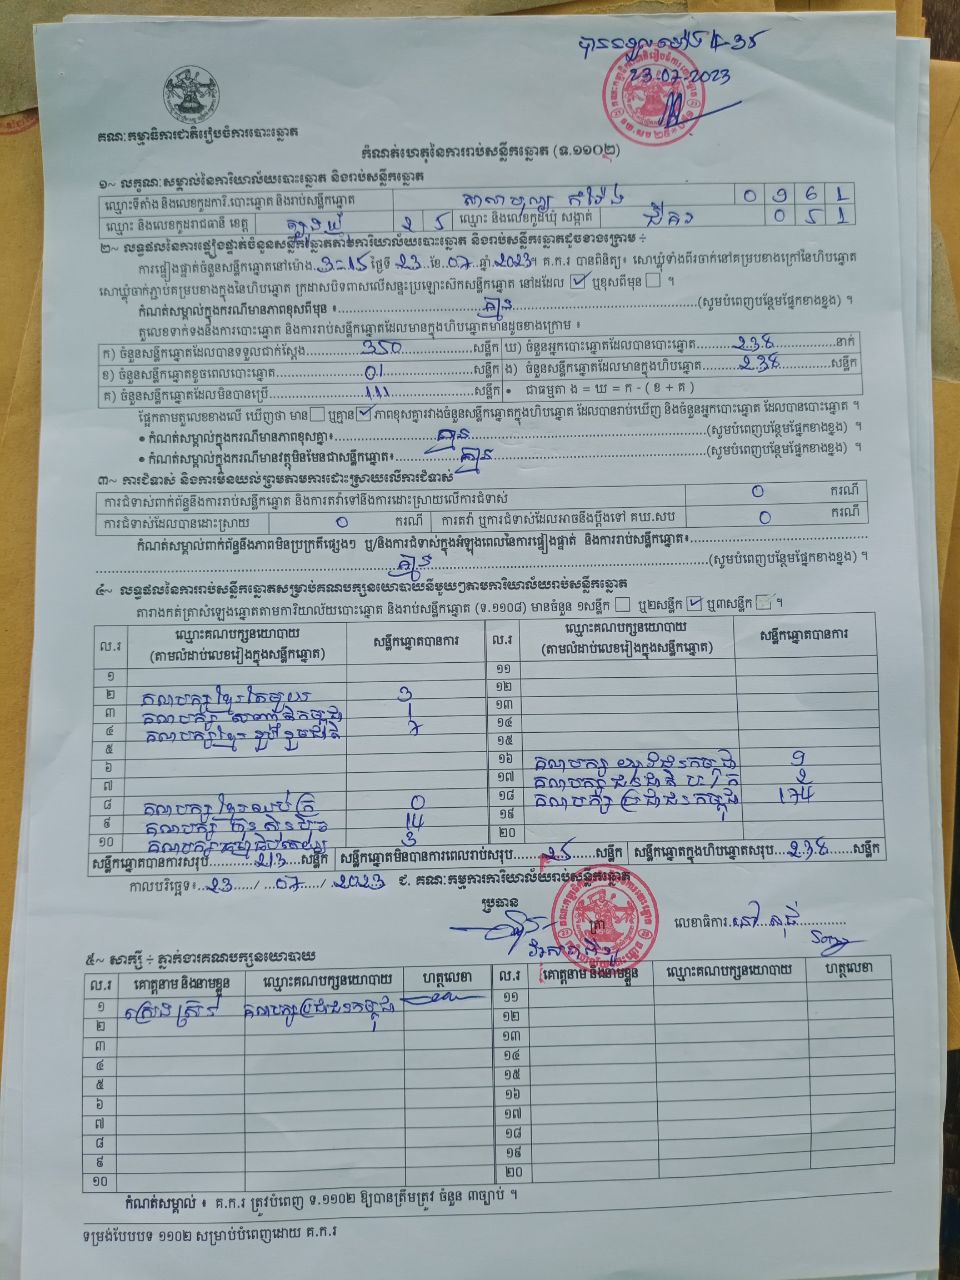 បានទទួលម៉ោង 4-35
23.07-2023
គណៈកម្មាធិការជាតិរៀបចំការបោះឆ្នោត
កំណត់ហេតុនៃការរាប់សន្លឹកឆ្នោត (ទ.១១០២)
១~ លក្ខណៈសម្គាល់នៃការិយាល័យបោះឆ្នោត និងរាប់សន្លឹកឆ្នោត
ឈ្មោះទីតាំង និងលេខកូដការិ.បោះឆ្នោត និងរាប់សន្លឹកឆ្នោត 0961
ឈ្មោះ និងលេខកូដរាជធានី ខេត្ត ត្បូងឃ្មុំ 25 ឈ្មោះ និងលេខកូដឃុំ សង្កាត់ 051
២~ លទ្ធផលនៃការផ្ទៀងផ្ទាត់ចំនួនសន្លឹកឆ្នោតតាមការិយាល័យបោះឆ្នោត និងរាប់សន្លឹកឆ្នោតដូចខាងក្រោម ÷
ការផ្ទៀងផ្ទាត់ចំនួនសន្លឹកឆ្នោតនៅម៉ោង 3-15 ថ្ងៃទី 23 ខែ 07 ឆ្នាំ 2023។ គ.ក.រ បានពិនិត្យ៖ សោឃ្លុំទាំងពីរចាក់នៅគម្របខាងក្រៅនៃហិបឆ្នោត
សោឃ្លុំចាក់ភ្ជាប់គម្របខាងក្នុងនៃហិបឆ្នោត ក្រដាសបិទពាសលើសន្ទះប្រឡោះស៊កសន្លឹកឆ្នោត នៅដដែល ☑ ឬខុសពីមុន ☐ ។
កំណត់សម្គាល់ក្នុងករណីមានភាពខុសពីមុន ៖ គ្មាន (សូមបំពេញបន្ថែមផ្នែកខាងខ្នង) ។
តួលេខទាក់ទងនឹងការបោះឆ្នោត និងការរាប់សន្លឹកឆ្នោតដែលមានក្នុងហិបឆ្នោតមានដូចខាងក្រោម ៖
ក) ចំនួនសន្លឹកឆ្នោតដែលបានទទួលជាក់ស្តែង 350 សន្លឹក ឃ) ចំនួនអ្នកបោះឆ្នោតដែលបានបោះឆ្នោត 238 នាក់
ខ) ចំនួនសន្លឹកឆ្នោតខូចពេលបោះឆ្នោត 01 សន្លឹក ង) ចំនួនសន្លឹកឆ្នោតដែលមានក្នុងហិបឆ្នោត 238 សន្លឹក
គ) ចំនួនសន្លឹកឆ្នោតដែលមិនបានប្រើ 111 សន្លឹក • ជាធម្មតា ង = ឃ = ក - ( ខ + គ )
ផ្អែកតាមតួលេខខាងលើ ឃើញថា មាន ☐ ឬគ្មាន ☑ ភាពខុសគ្នារវាងចំនួនសន្លឹកឆ្នោតក្នុងហិបឆ្នោត ដែលបានរាប់ឃើញ និងចំនួនអ្នកបោះឆ្នោត ដែលបានបោះឆ្នោត ។
• កំណត់សម្គាល់ក្នុងករណីមានភាពខុសគ្នា៖ គ្មាន (សូមបំពេញបន្ថែមផ្នែកខាងខ្នង) ។
• កំណត់សម្គាល់ក្នុងករណីមានវត្ថុមិនមែនជាសន្លឹកឆ្នោត៖ គ្មាន (សូមបំពេញបន្ថែមផ្នែកខាងខ្នង) ។
៣~ ការជំទាស់ និងការមិនយល់ព្រមតាមការដោះស្រាយលើការជំទាស់
ការជំទាស់ពាក់ព័ន្ធនឹងការរាប់សន្លឹកឆ្នោត និងការតវ៉ាទៅនឹងការដោះស្រាយលើការជំទាស់ 0 ករណី
ការជំទាស់ដែលបានដោះស្រាយ 0 ករណី ការតវ៉ា ឬការជំទាស់ដែលអាចនឹងប្តឹងទៅ គឃ.សប 0 ករណី
កំណត់សម្គាល់ពាក់ព័ន្ធនឹងភាពមិនប្រក្រតីផ្សេងៗ ឬ/និងការជំទាស់ក្នុងអំឡុងពេលនៃការផ្ទៀងផ្ទាត់ និងការរាប់សន្លឹកឆ្នោត៖
គ្មាន (សូមបំពេញបន្ថែមផ្នែកខាងខ្នង) ។
៤~ លទ្ធផលនៃការរាប់សន្លឹកឆ្នោតសម្រាប់គណបក្សនយោបាយនីមួយៗតាមការិយាល័យរាប់សន្លឹកឆ្នោត
តារាងកត់ត្រាសំឡេងឆ្នោតតាមការិយាល័យបោះឆ្នោត និងរាប់សន្លឹកឆ្នោត (ទ.១១០៨) មានចំនួន ១សន្លឹក ☐ ឬ២សន្លឹក ☑ ឬ៣សន្លឹក ☐ ។
ល.រ ឈ្មោះគណបក្សនយោបាយ (តាមលំដាប់លេខរៀងក្នុងសន្លឹកឆ្នោត) សន្លឹកឆ្នោតបានការ ល.រ ឈ្មោះគណបក្សនយោបាយ (តាមលំដាប់លេខរៀងក្នុងសន្លឹកឆ្នោត) សន្លឹកឆ្នោតបានការ
១ ១១
២ គណបក្សខ្មែរតែមួយ 3 ១២
៣ គណបក្ស សញ្ជាតិកម្ពុជា 1 ១៣
៤ គណបក្សខ្មែររួបរួមជាតិ 7 ១៤
៥ ១៥
៦ ១៦ គណបក្ស យុវជនកម្ពុជា 9
៧ ១៧ គណបក្ស 2
៨ គណបក្សខ្មែរឈប់ក្រ 0 ១៨ គណបក្ស ប្រជាជនកម្ពុជា 174
៩ គណបក្ស ហ៊្វុនស៊ិនប៉ិច 14 ១៩
១០ គណបក្ស 3 ២០
សន្លឹកឆ្នោតបានការសរុប 213 សន្លឹក សន្លឹកឆ្នោតមិនបានការពេលរាប់សរុប 25 សន្លឹក សន្លឹកឆ្នោតក្នុងហិបឆ្នោតសរុប 238 សន្លឹក
កាលបរិច្ឆេទ៖ 23 / 07 / 2023 ជ. គណៈកម្មការការិយាល័យរាប់សន្លឹកឆ្នោត
ប្រធាន
ត្រា លេខាធិការ
៥~ សាក្សី ÷ ភ្នាក់ងារគណបក្សនយោបាយ
ល.រ គោត្តនាម និងនាមខ្លួន ឈ្មោះគណបក្សនយោបាយ ហត្ថលេខា ល.រ គោត្តនាម និងនាមខ្លួន ឈ្មោះគណបក្សនយោបាយ ហត្ថលេខា
១ គណបក្សប្រជាជនកម្ពុជា ១១
២ ១២
៣ ១៣
៤ ១៤
៥ ១៥
៦ ១៦
៧ ១៧
៨ ១៨
៩ ១៩
១០ ២០
កំណត់សម្គាល់ ៖ គ.ក.រ ត្រូវបំពេញ ទ.១១០២ ឱ្យបានត្រឹមត្រូវ ចំនួន ៣ច្បាប់ ។
ទម្រង់បែបបទ ១១០២ សម្រាប់បំពេញដោយ គ.ក.រ